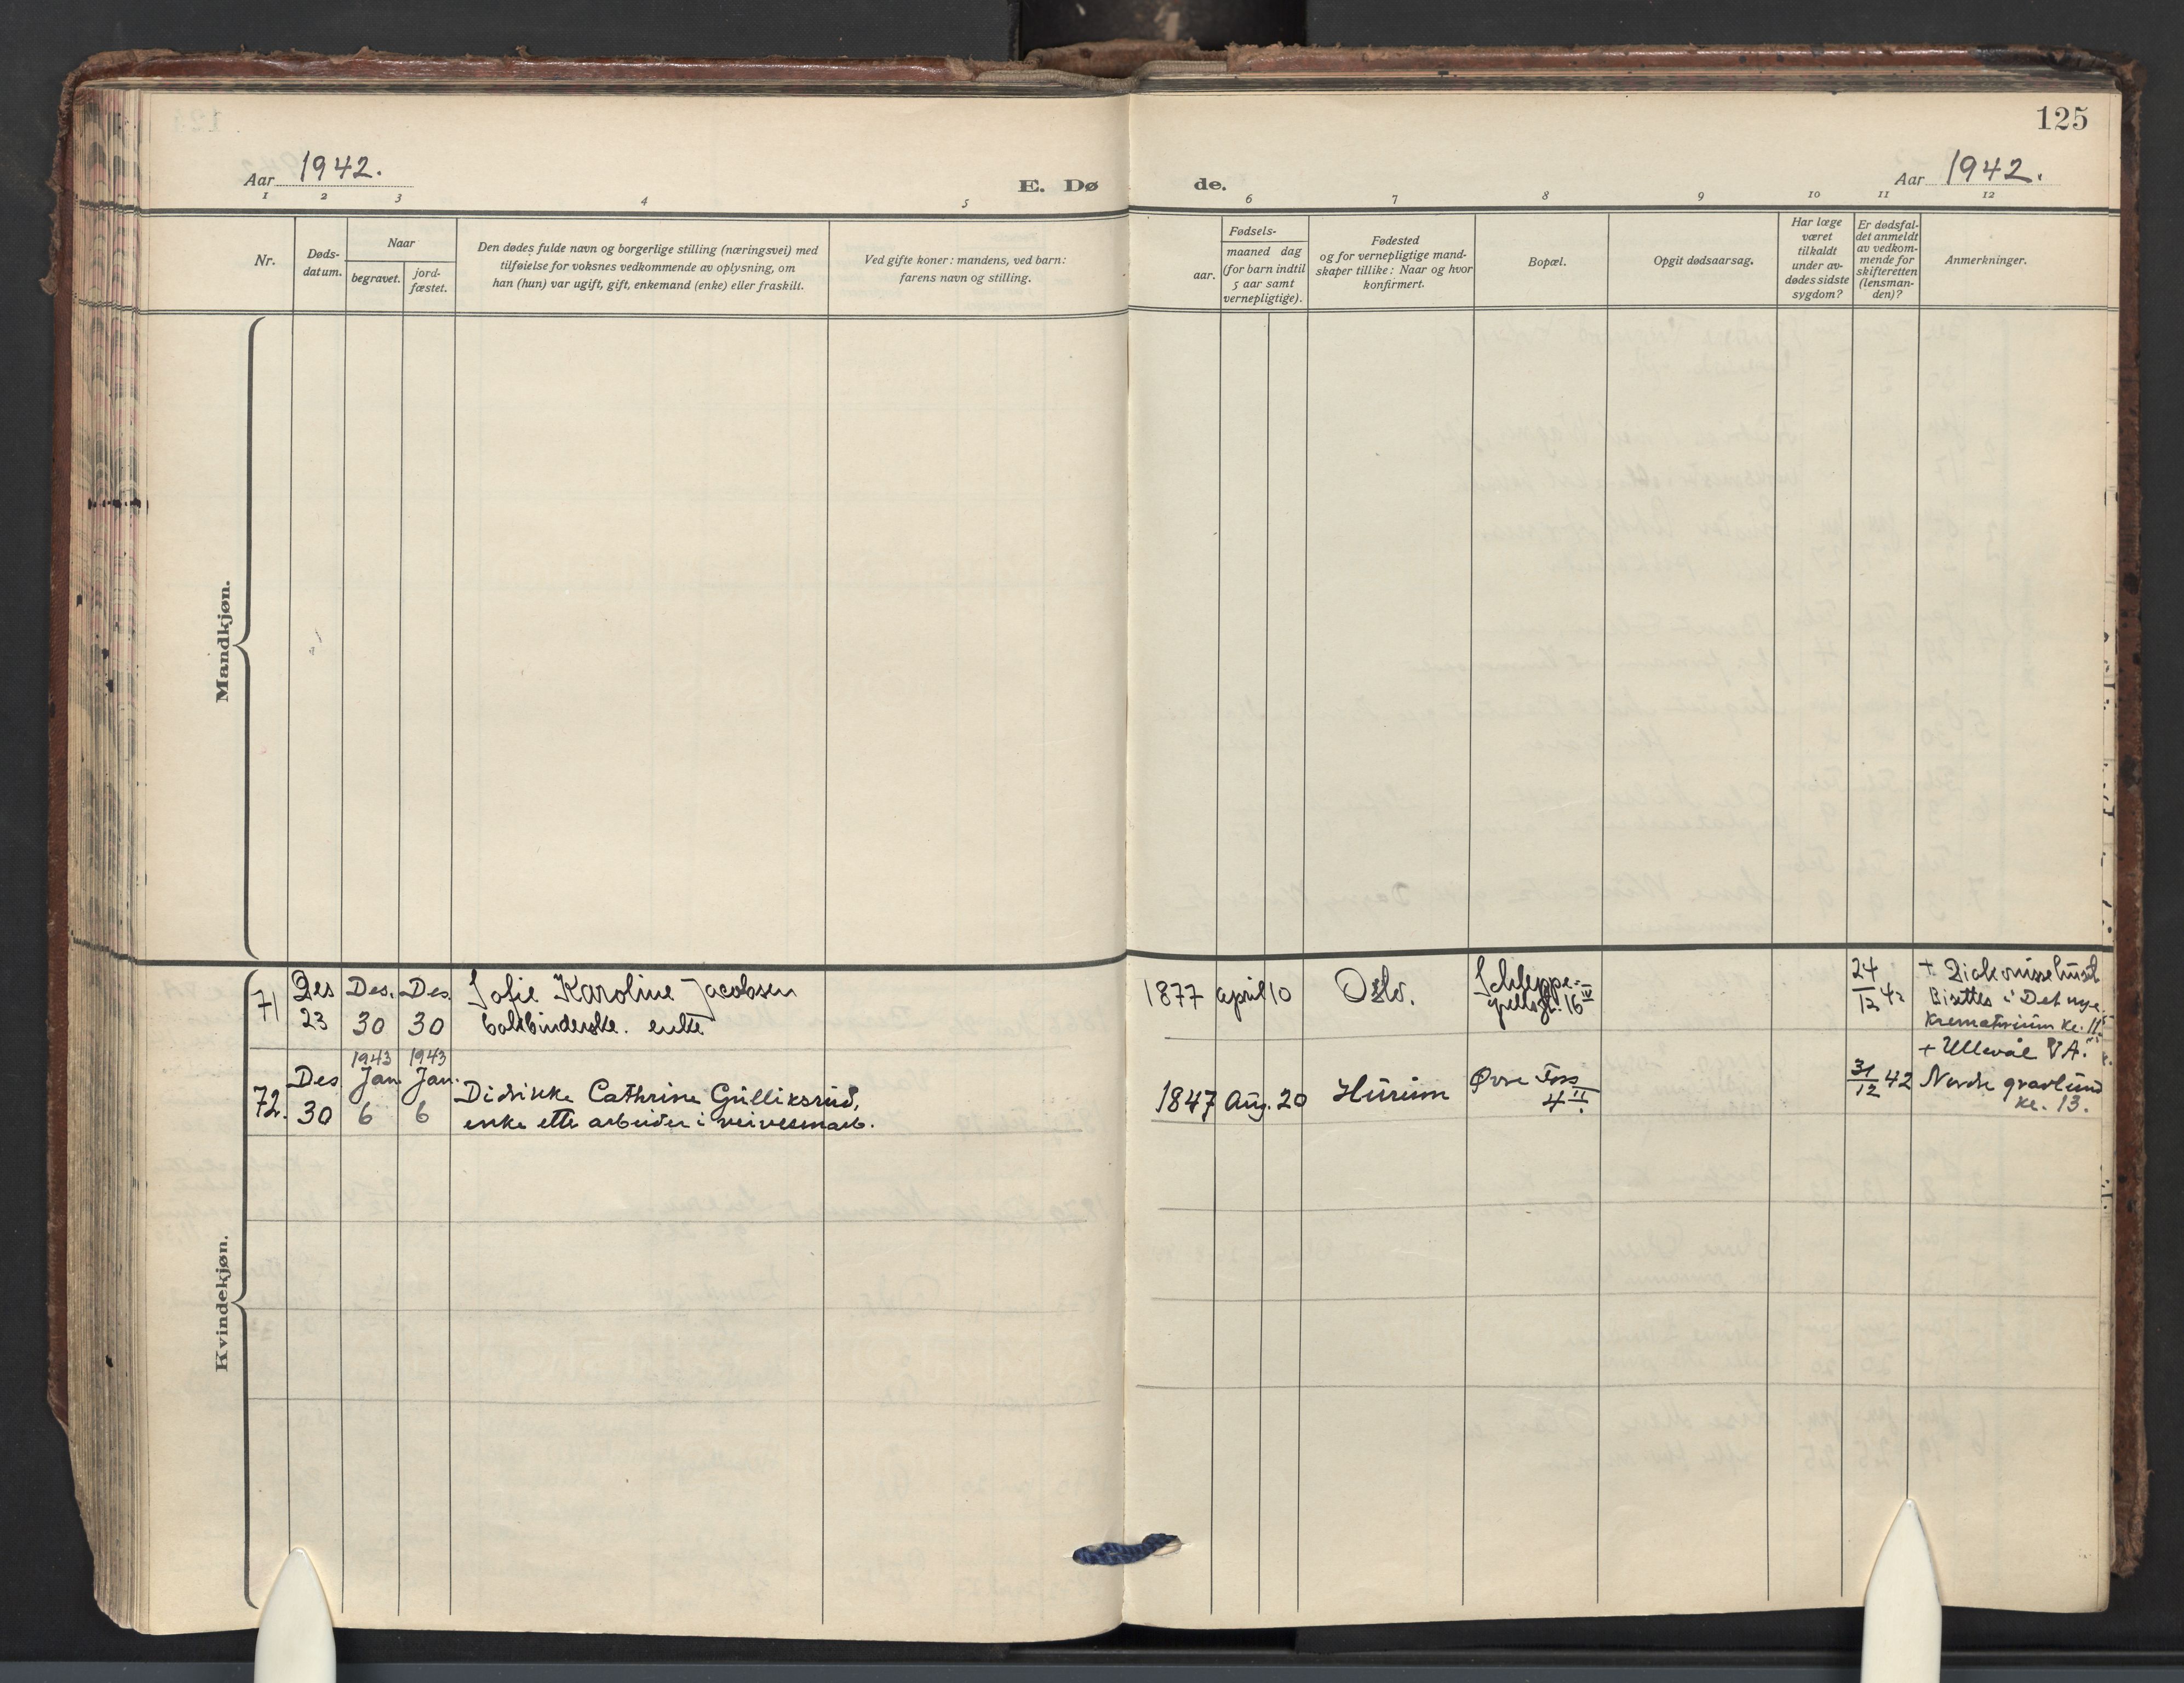 125
Aar 1942.
E. Dø de.
Aar 1942.
1 2 3 4 5 6 7 8 9 10 11 12
Nr.
Døds-
datum.
Naar
begravet.
jord-
fæstet.
Den dødes fulde navn og borgerlige stilling (næringsvei) med
tilføielse for voksnes vedkommende av oplysning, om
han (hun) var ugift, gift, enkemand (enke) eller fraskilt.
Ved gifte koner: mandens, ved barn:
farens navn og stilling.
aar.
Fødsels-
maaned dag
(for barn indtil
5 aar samt
vernepligtige).
Fødested
og for vernepligtige mand-
skaper tillike: Naar og hvor
konfirmert.
Bopæl.
Opgit dødsaarsag.
Har læge
været
tilkaldt
under av-
dødes sidste
sygdom?
Er dødsfal-
det anmeldt
av vedkom-
mende for
skifteretten
(lensman-
den)?
Anmerkninger.
Mandkjøn.
Kvindekjøn.
71
Des
23
Des.
30
Des.
30
Sofie Karoline Jacobsen
bokbinderske. enke
1877 april 10
Oslo.
Schleppe-
grellsgt. 16 IV
24
12 42
+ Diakonissehuset
Bisettes i Det nye
Krematorium kl. 11
72.
Des
30
1943
Jan
6
1943
Jan.
6
Didrikke Cathrine Gulliksrud,
enke etter arbeider i veivesenarb.
1847 Aug. 20
Hurum
Øvre Foss
4 II
31
12 42
+ Ullevål VA.
Nordre gravlund
kl. 13.